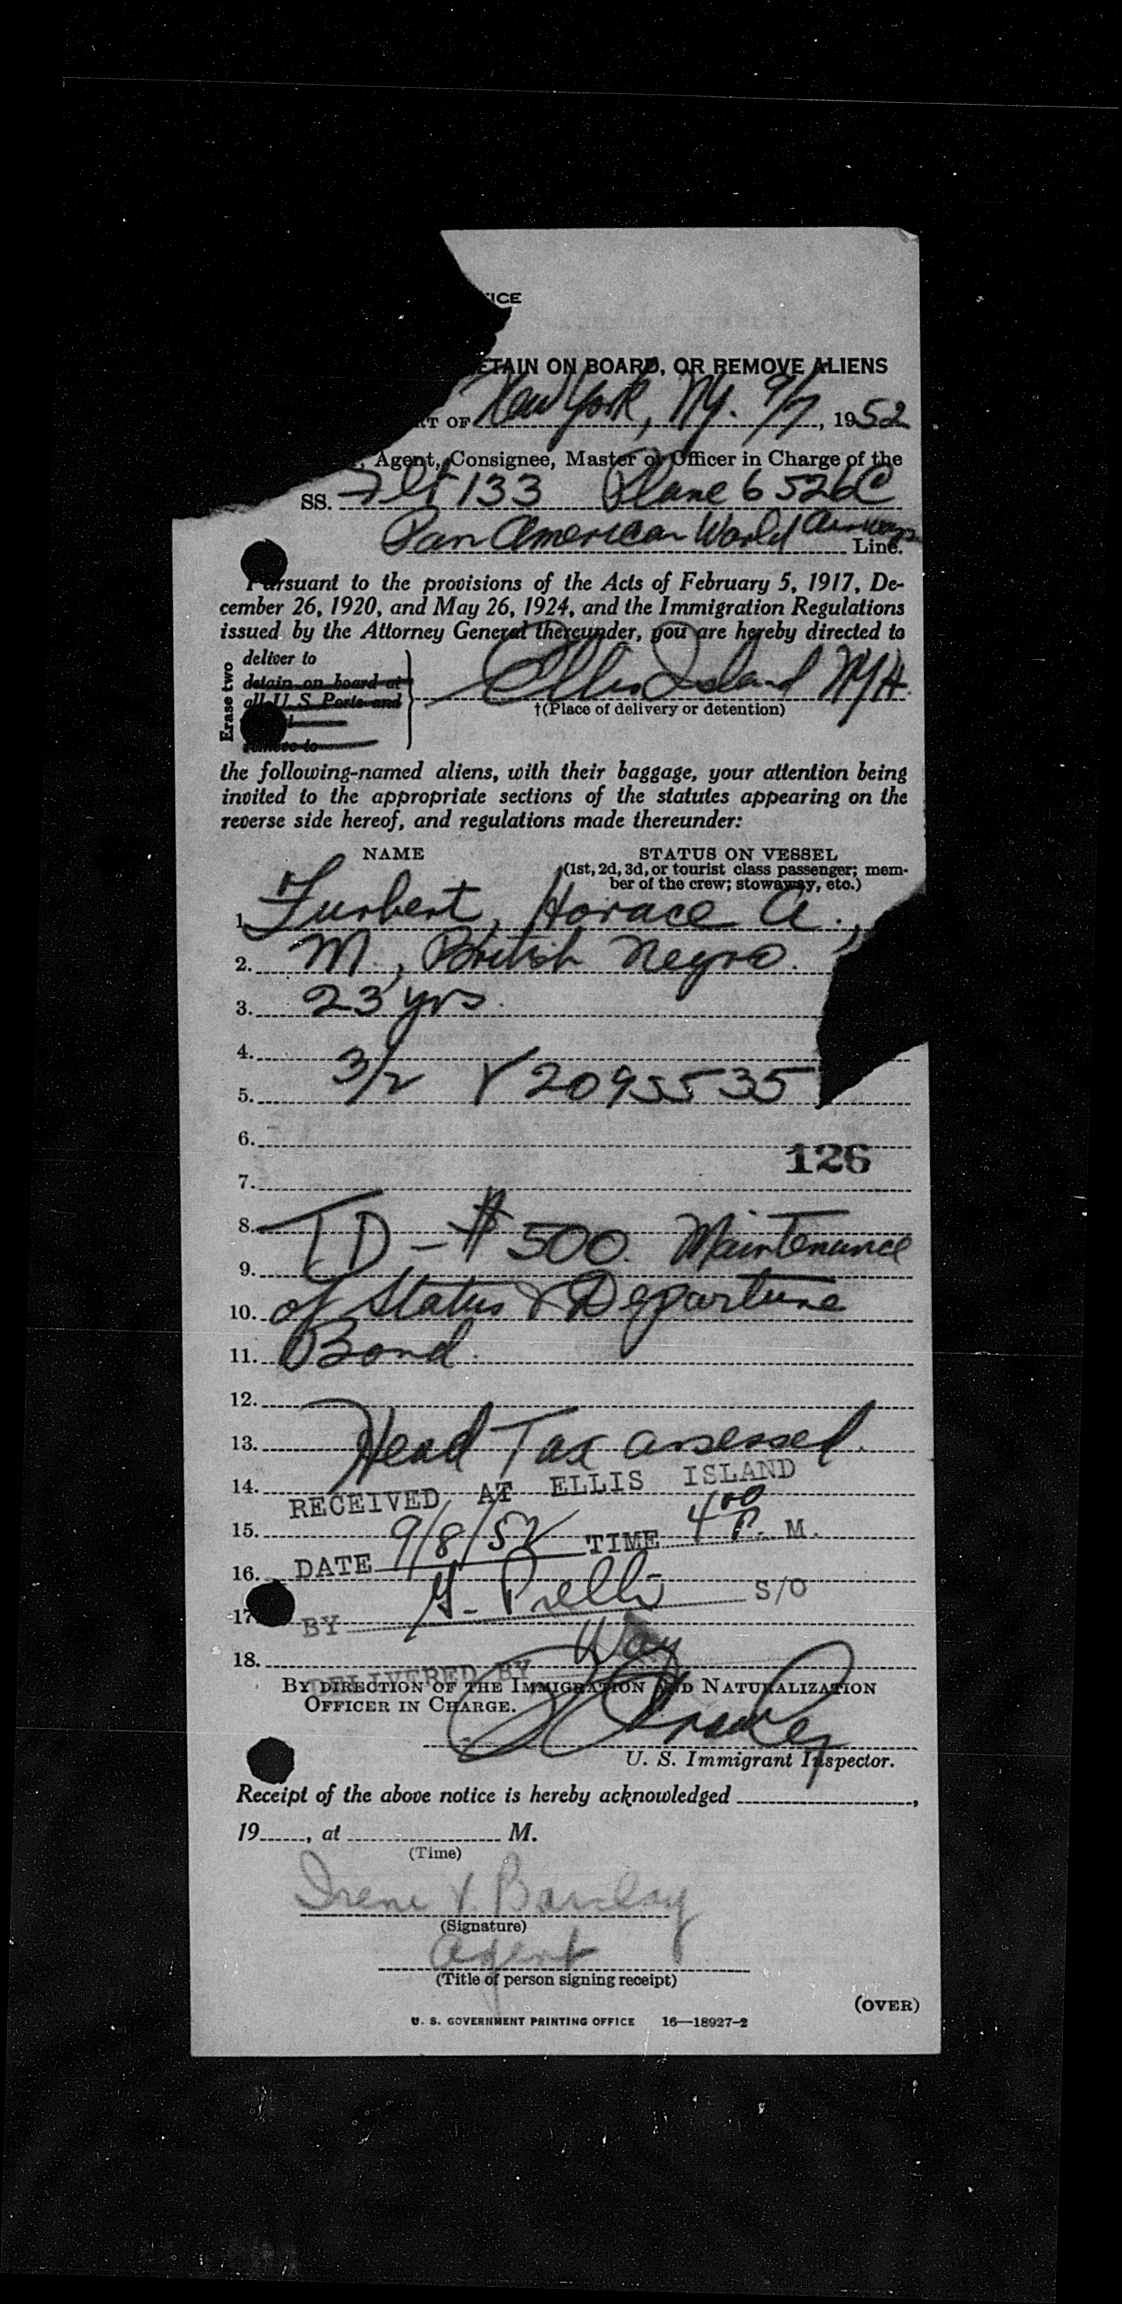 ICE
ETAIN ON BOARD, OR REMOVE ALIENS
RT OF New York, NY. 9/7, 1952
, Agent, Consignee, Master or Officer in Charge of the
SS. Flt 133 Plane 6526C
Pan American World Airways Line.
Pursuant to the provisions of the Acts of February 5, 1917, De-
cember 26, 1920, and May 26, 1924, and the Immigration Regulations
issued by the Attorney General thereunder, you are hereby directed to
Erase two
deliver to
detain on board at
all U. S. Ports and
remove to
Ellis Island NYH.
†(Place of delivery or detention)
the following-named aliens, with their baggage, your attention being
invited to the appropriate sections of the statutes appearing on the
reverse side hereof, and regulations made thereunder:
NAME STATUS ON VESSEL
(1st, 2d, 3d, or tourist class passenger; mem-
ber of the crew; stowaway, etc.)
1. Furbert, Horace A.,
2. M, British Negro.
3. 23 yrs.
4.
5. 3/2 V2095535
6.
126
7.
8.
9. TD - $500. Maintenance
10. of Status & Departure
11. Bond.
12.
13. Head Tax assessed.
14.
RECEIVED AT ELLIS ISLAND
15.
DATE 9/8/52 TIME 4 00 P. M.
16.
17.
BY G. S/O
18.
DELIVERED BY
BY DIRECTION OF THE IMMIGRATION AND NATURALIZATION
OFFICER IN CHARGE.
U. S. Immigrant Inspector.
Receipt of the above notice is hereby acknowledged ,
19 , at M.
(Time)
Irene V Barclay
(Signature)
Agent
(Title of person signing receipt)
(OVER)
U. S. GOVERNMENT PRINTING OFFICE 16—18927-2